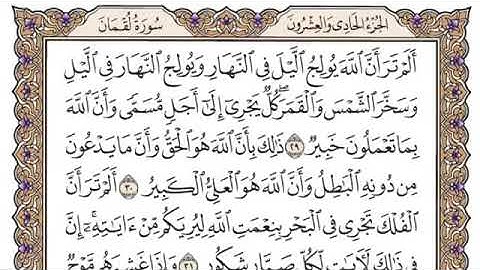 الجزء الحادي والعشرون
سورة لقمان
أَلَمْ تَرَ أَنَّ ٱللَّهَ يُولِجُ ٱلَّيْلَ فِى ٱلنَّهَارِ وَيُولِجُ ٱلنَّهَارَ فِى ٱلَّيْلِ
وَسَخَّرَ ٱلشَّمْسَ وَٱلْقَمَرَ كُلٌّ يَجْرِىٓ إِلَىٰٓ أَجَلٍ مُّسَمًّى وَأَنَّ ٱللَّهَ
بِمَا تَعْمَلُونَ خَبِيرٌ ٢٩ ذَٰلِكَ بِأَنَّ ٱللَّهَ هُوَ ٱلْحَقُّ وَأَنَّ مَا يَدْعُونَ
مِن دُونِهِ ٱلْبَٰطِلُ وَأَنَّ ٱللَّهَ هُوَ ٱلْعَلِىُّ ٱلْكَبِيرُ ٣٠ أَلَمْ تَرَ أَنَّ
ٱلْفُلْكَ تَجْرِى فِى ٱلْبَحْرِ بِنِعْمَتِ ٱللَّهِ لِيُرِيَكُم مِّنْ ءَايَٰتِهِۦٓ ۚ إِنَّ
فِى ذَٰلِكَ لَءَايَٰتٍ لِّكُلِّ صَبَّارٍ شَكُورٍ ٣١ وَإِذَا غَشِيَهُم مَّوْجٌ